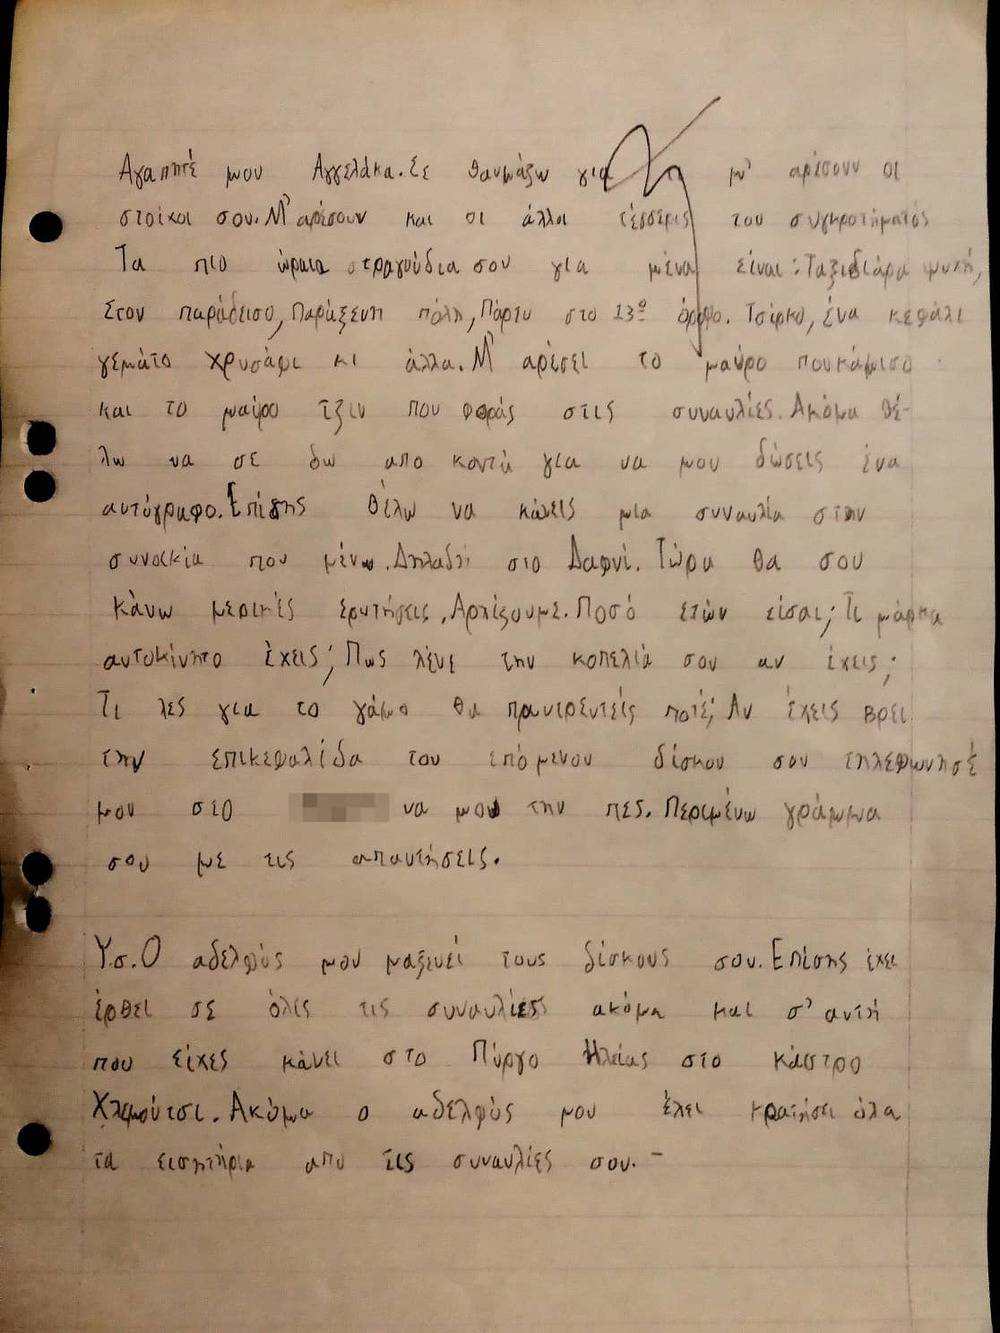 Αγαπητέ μου Αγγελάκα. Σε θαυμάζω για μ' αρέσουν οι
στοίχοι σου. Μ' αρέσουν και οι άλλοι τέσσερις του συγκροτήματος
Τα πιο ώραια τραγούδια σου για μένα είναι: Ταξιδιάρα ψυχή,
Στον παράδεισο, Παράξενη πόλη, Πάρτυ στο 13º όροφο. Τσίρκο, ένα κεφάλι
γεμάτο χρυσάφι κι άλλα. Μ' αρέσει το μαύρο πουκάμισο
και το μαύρο τζιν που φοράς στις συναυλίες. Ακόμα θέ-
λω να σε δω απο κοντά για να μου δώσεις ένα
αυτόγραφο. Επίσης θέλω να κάνεις μια συναυλία στην
συνοικία που μένω. Δηλαδή στο Δαφνί. Τώρα θα σου
κάνω μερικές ερωτήσεις. Αρχίζουμε. Ποσό ετών είσαι; Τι μάρκα
αυτοκίνητο έχεις; Πως λένε την κοπελιά σου αν έχεις;
Τι λες για το γάμο θα πραντρευτείς ποτέ; Αν έχεις βρει
την επικεφαλίδα του επόμενου δίσκου σου τηλεφωνησέ
μου στο να μου την πες. Περιμένω γράμμα
σου με τις απαντήσεις.
Υ.σ. Ο αδελφός μου μαζευεί τους δίσκους σου. Επίσης έχει
έρθει σε όλες τις συναυλίες ακόμα και σ' αυτή
που είχες κάνει στο Πύργο Ηλείας στο κάστρο
Χλεμούτσι. Ακόμα ο αδελφός μου έχει κρατήσει όλα
τα εισητήρια απο τις συναυλίες σου. -